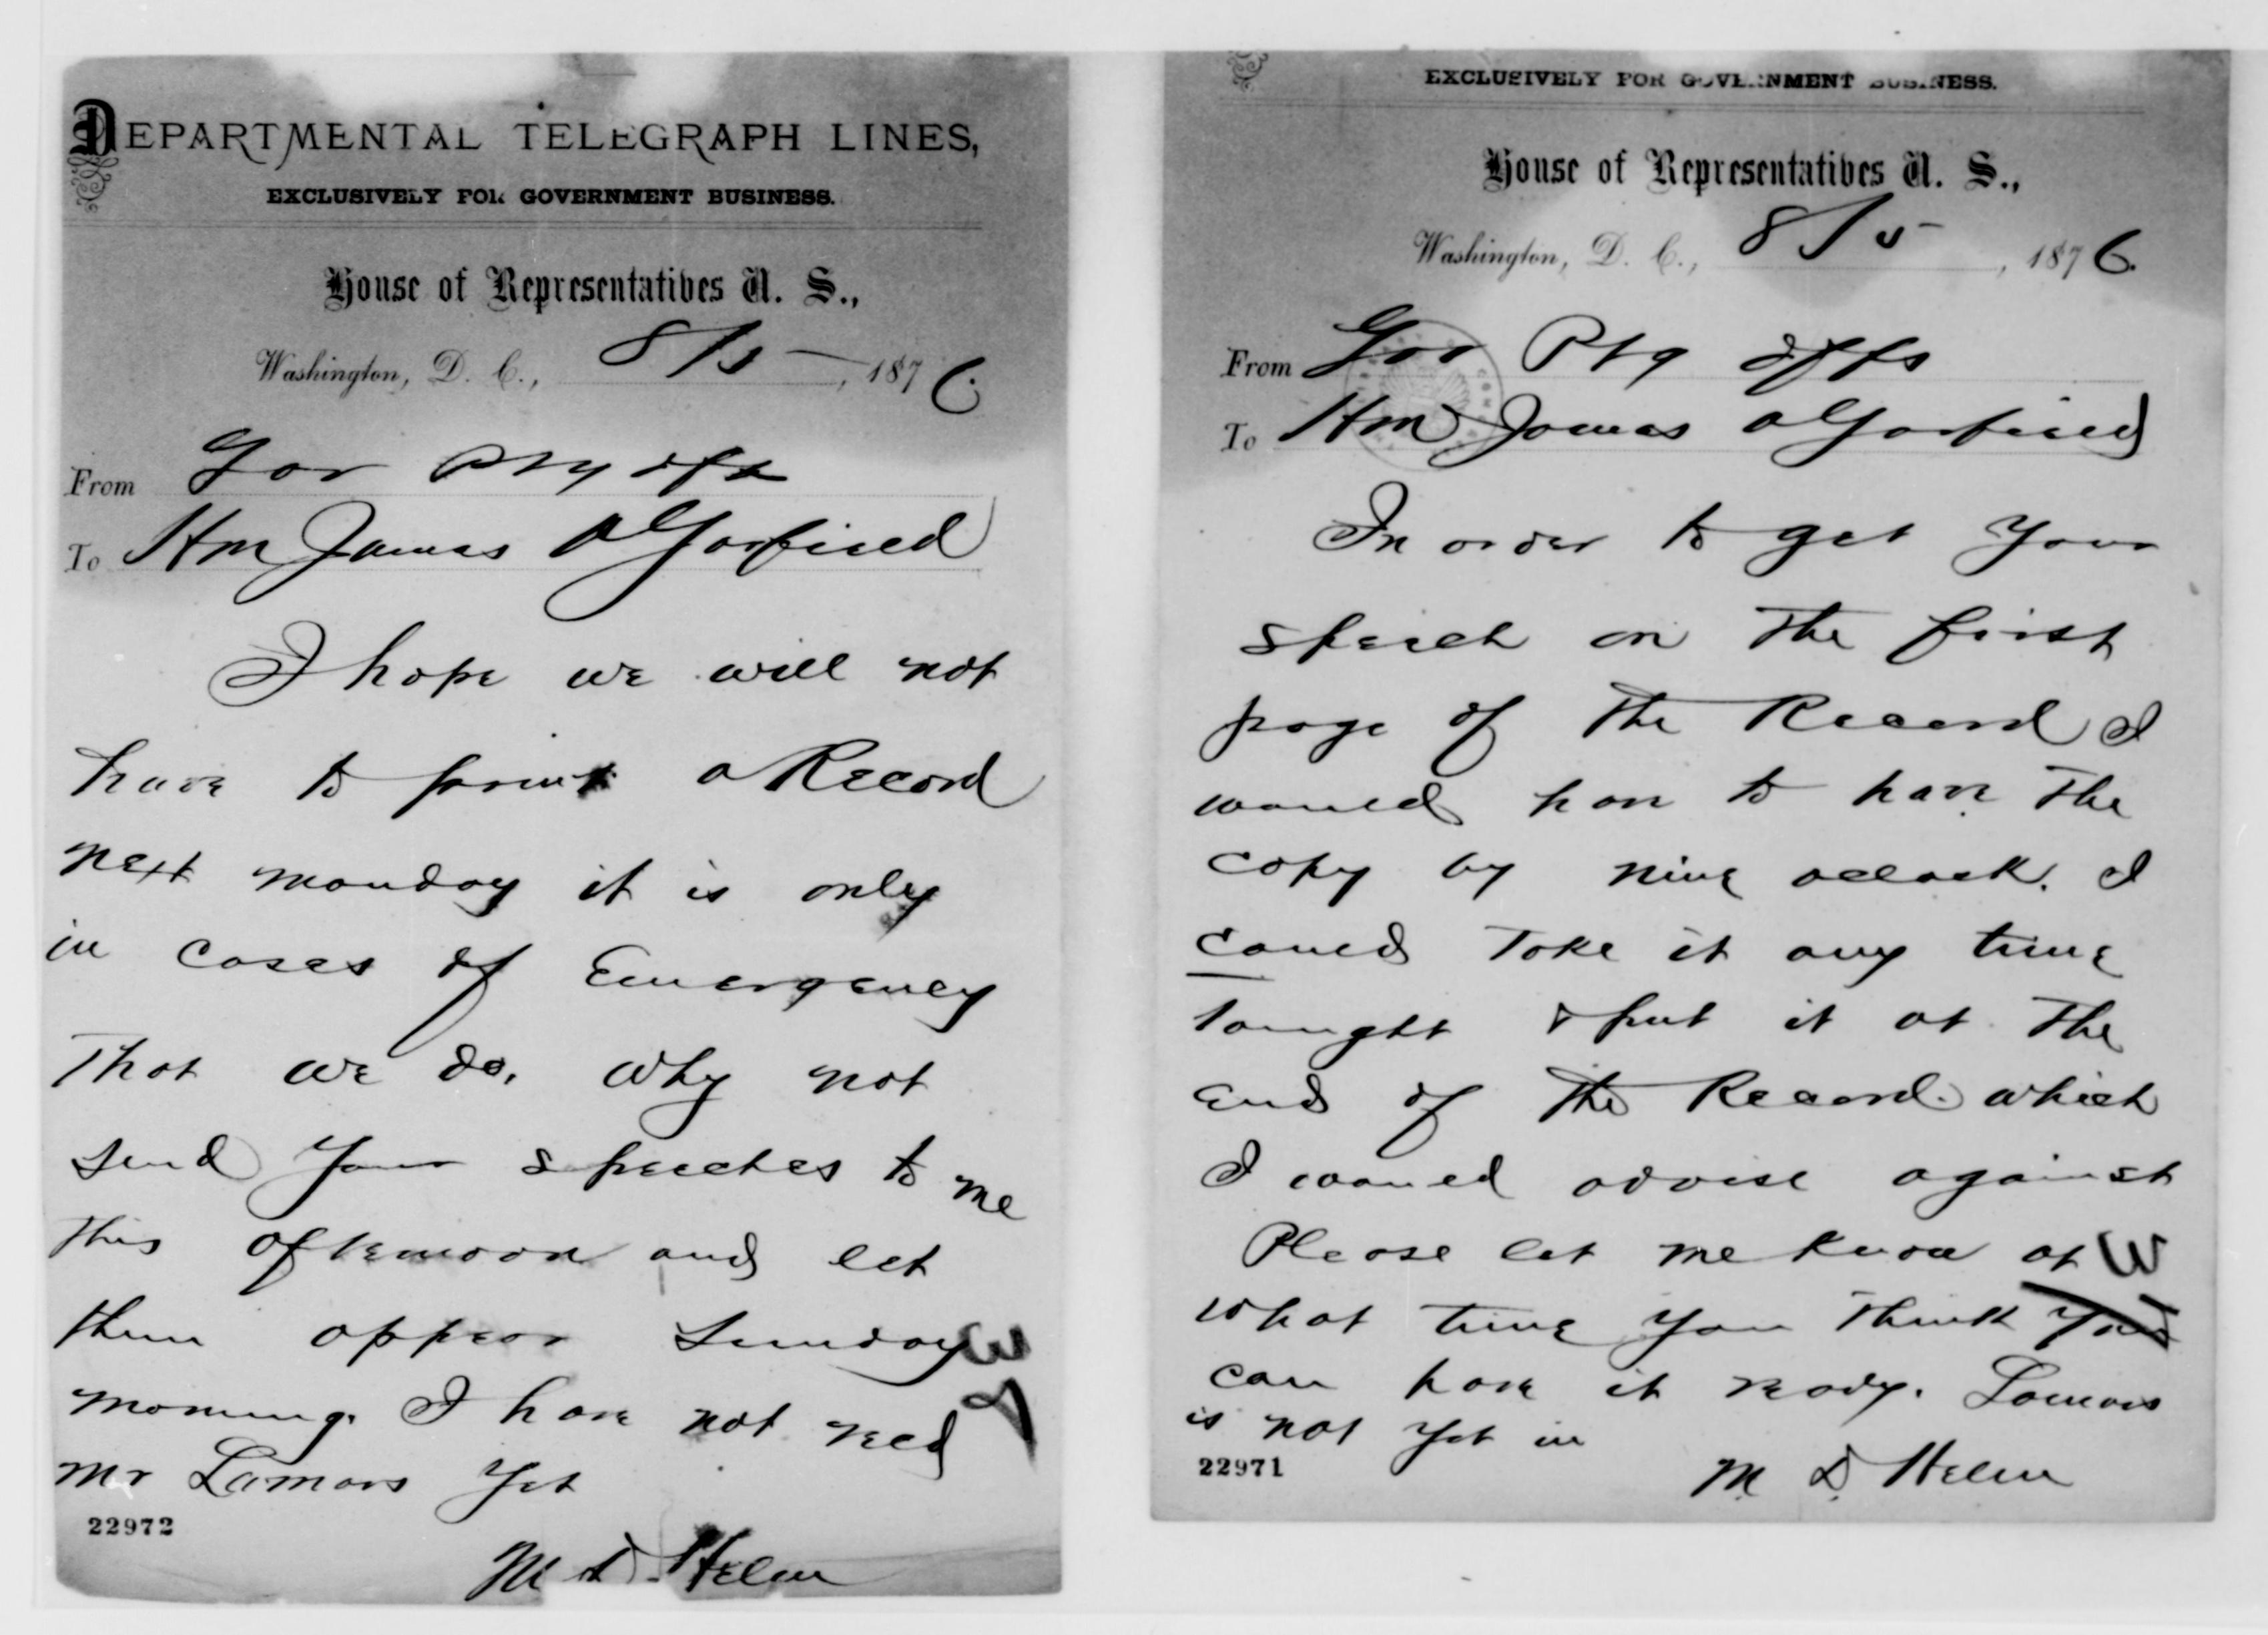 DEPARTMENTAL TELEGRAPH LINES,
EXCLUSIVELY FOR GOVERNMENT BUSINESS.
House of Representatives U. S.,
Washington, D. C., 8/5, 1876
From Gov Ptg offs
To Hon James A Garfield
I hope we will not
have to print a Record
next monday it is only
in cases of Emergency
That we do. Why not
send your speeches to me
this afternoon and let
them appear Sunday
morning. I have not recd
Mr Lamars yet
22972
M D Helm
EXCLUSIVELY FOR GOVERNMENT BUSINESS.
House of Representatives U. S.,
Washington, D. C., 8/5, 1876.
From Gov Ptg offs
To Hon James A Garfield
In order to get your
speech on the first
page of the Record I
would have to have the
copy by nine oclock. I
could take it any time
tonight & put it at the
end of the Record which
I would advise against
Please let me know at
what time you think you
can have it ready. Lamars
is not yet in
22971
M. D. Helm